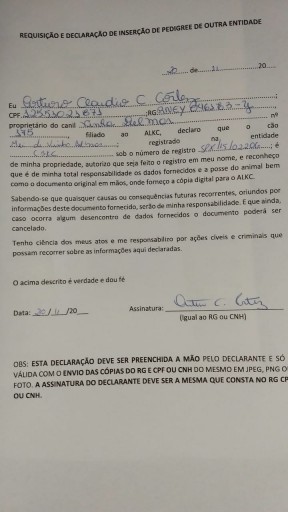 REQUISIÇÃO E DECLARAÇÃO DE INSERÇÃO DE PEDIGREE DE OUTRA ENTIDADE
20 de 11 20
Eu Arturo Claudio C Cortez ;
CPF ;RG
proprietário do canil nº
175, filiado ao ALKC, declaro que o cão
registrado na, entidade
sob o número de registro ; é
de minha propriedade, autorizo que seja feito o registro em meu nome, e reconheço
que é de minha total responsabilidade os dados fornecidos e a posse do animal bem
como o documento original em mãos, onde forneço a cópia digital para o ALKC.
Sabendo-se que quaisquer causas ou consequências futuras recorrentes, oriundos por
informações deste documento fornecido, serão de minha responsabilidade. E que ainda,
caso ocorra algum desencontro de dados fornecidos o documento poderá ser
cancelado.
Tenho ciência dos meus atos e me responsabilizo por ações cíveis e criminais que
possam recorrer sobre as informações aqui declaradas.
O acima descrito é verdade e dou fé
Data: 20/11/20 Assinatura:
(Igual ao RG ou CNH)
OBS: ESTA DECLARAÇÃO DEVE SER PREENCHIDA A MÃO PELO DECLARANTE E SÓ
VÁLIDA COM O ENVIO DAS CÓPIAS DO RG E CPF OU CNH DO MESMO EM JPEG, PNG O
FOTO. A ASSINATURA DO DECLARANTE DEVE SER A MESMA QUE CONSTA NO RG CP
OU CNH.